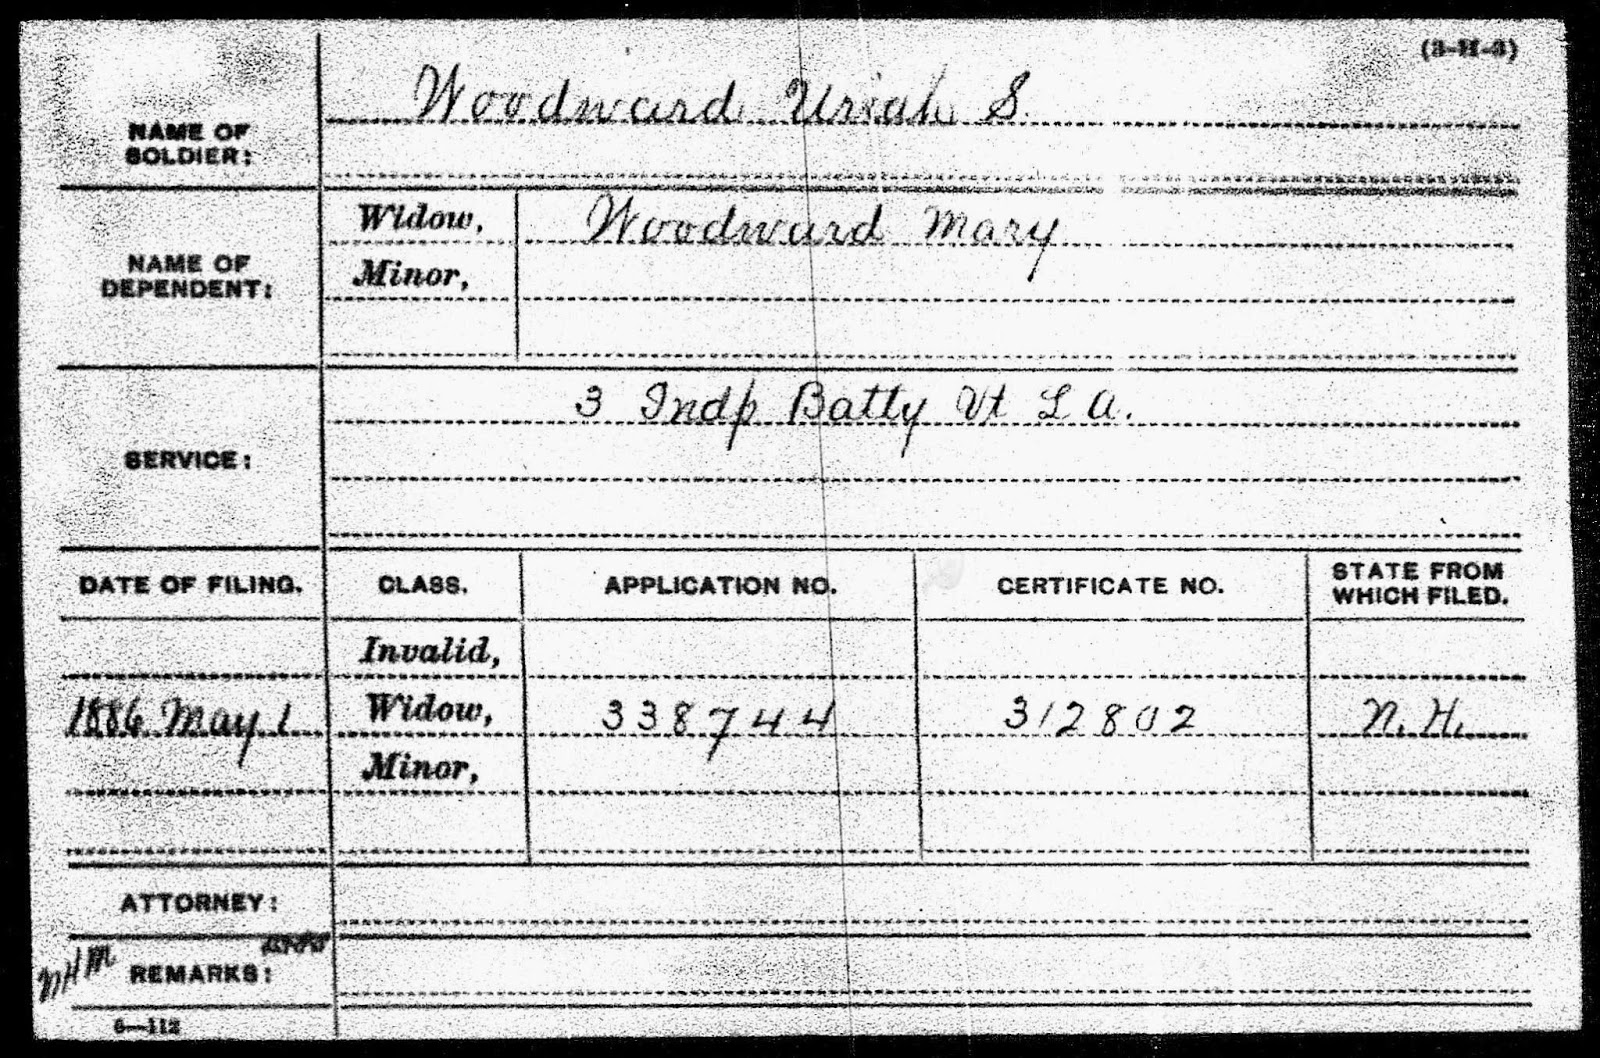 (3-H-3)
Woodward Uriah S.
NAME OF
SOLDIER:
Widow, Woodward Mary
NAME OF
DEPENDENT:
Minor,
3 Indp Batty Vt L A.
SERVICE:
DATE OF FILING. CLASS. APPLICATION NO. CERTIFICATE NO. STATE FROM WHICH FILED.
Invalid,
1886 May 1 Widow, 338744 312802 N.H.
Minor,
ATTORNEY:
REMARKS:
6—112